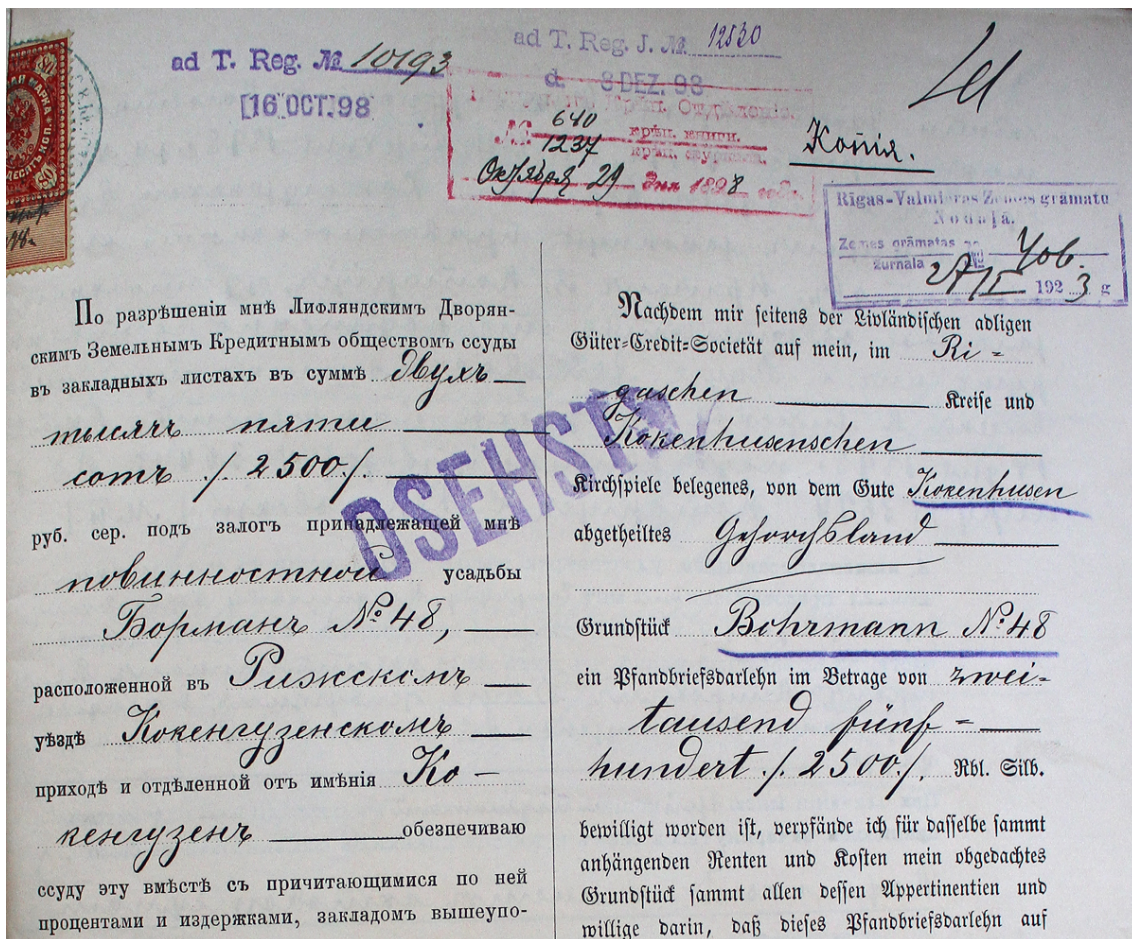 ad T. Reg. № 10193
[16 OCT. 98
ad T. Reg. J. № 12530
d. 8 DEZ. 98
Крѣп. Отдѣленіе.
№ 640 крѣп. книги.
1237 крѣп. журнала.
Октября 29 дня 1898 года.
Копія.
Rīgas-Valmieras Zemes grāmatu
Nodaļā.
Zemes grāmatas
žurnala № 406.
27/II 1923 g
По разрѣшеніи мнѣ Лифляндскимъ Дворян-
скимъ Земельнымъ Кредитнымъ обществомъ ссуды
въ закладныхъ листахъ въ суммѣ двухъ
тысячъ пяти
сотъ ./. 2500./.
руб. сер. подъ залогъ принадлежащей мнѣ
повинностной усадьбы
Борманъ № 48,
расположенной въ Рижскомъ
уѣздѣ Кокенгузенскомъ
приходѣ и отдѣленной отъ имѣнія Ко-
кенгузенъ обезпечиваю
ссуду эту вмѣстѣ съ причитающимися по ней
процентами и издержками, закладомъ вышеупо-
Nachdem mir seitens der Livländischen adligen
Güter-Credit-Societät auf mein, im Ri-
gaschen Kreise und
Kokenhusenschen
Kirchspiele belegenes, von dem Gute Kokenhusen
abgetheiltes Gehorchsland
Grundstück Bohrmann № 48
ein Pfandbriefsdarlehn im Betrage von zwei-
tausend fünf-
hundert ./. 2500./. Rbl. Silb.
bewilligt worden ist, verpfände ich für dasselbe sammt
anhängenden Renten und Kosten mein obgedachtes
Grundstück sammt allen dessen Appertinentien und
willige darin, daß dieses Pfandbriefsdarlehn auf